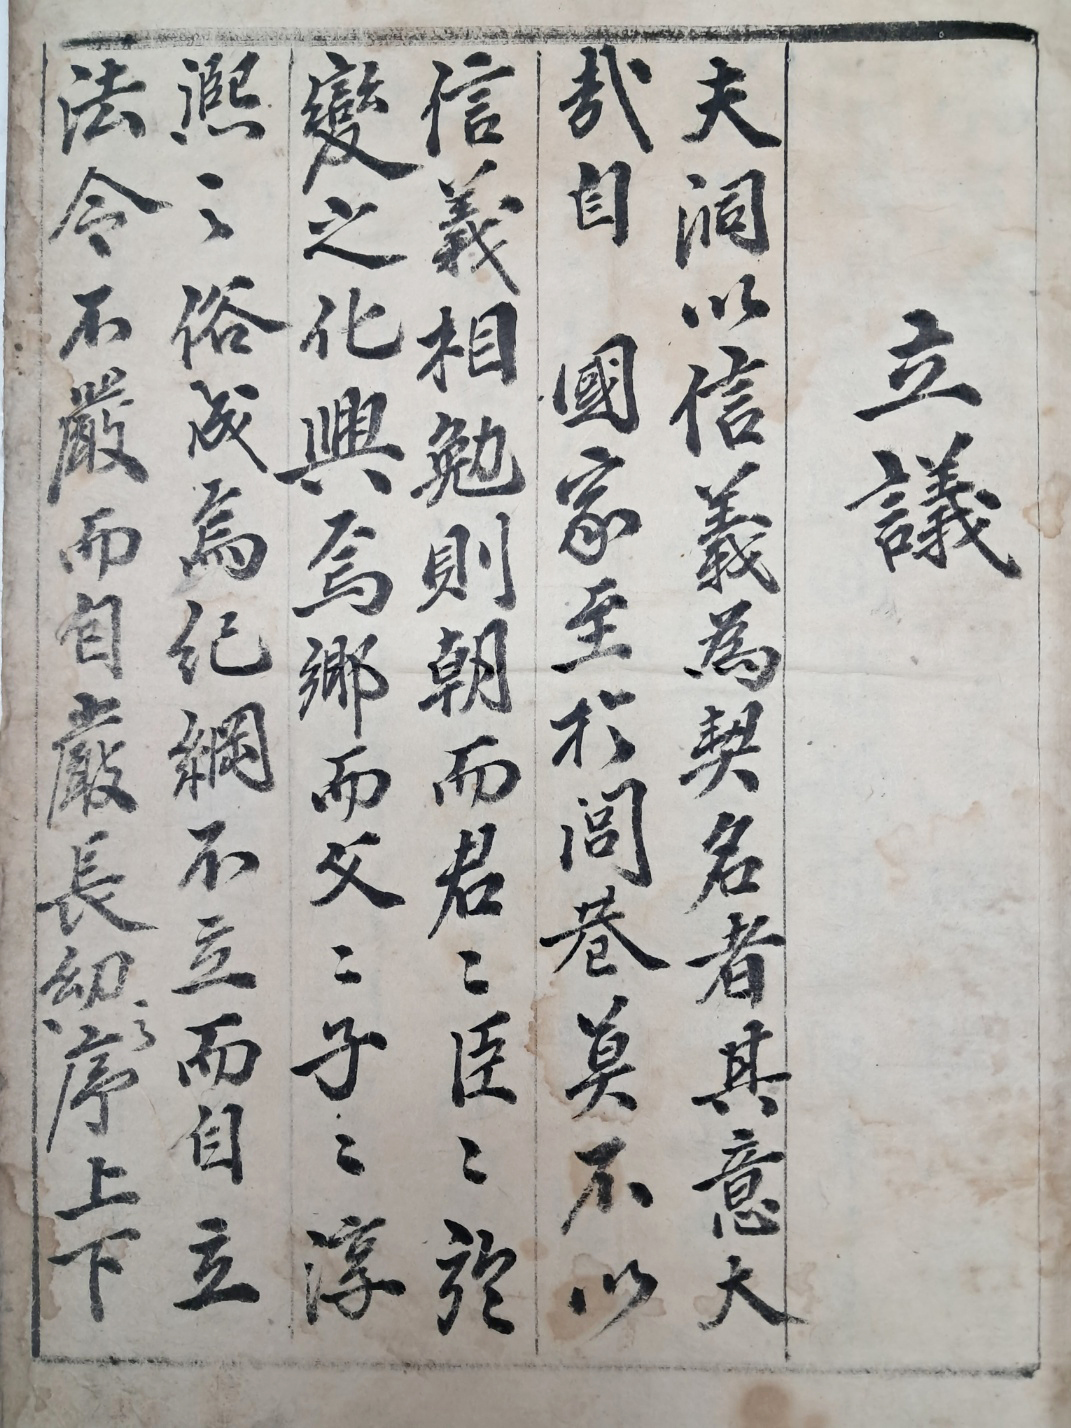 立議
夫洞以信義為契名者其意大
哉自 國家至於閭巷莫不以
信義相勉則朝而君〻臣〻於
變之化興焉鄉而父〻子〻淳
凞之俗成焉紀綱不立而自立
法令不嚴而自嚴長幼之序上下